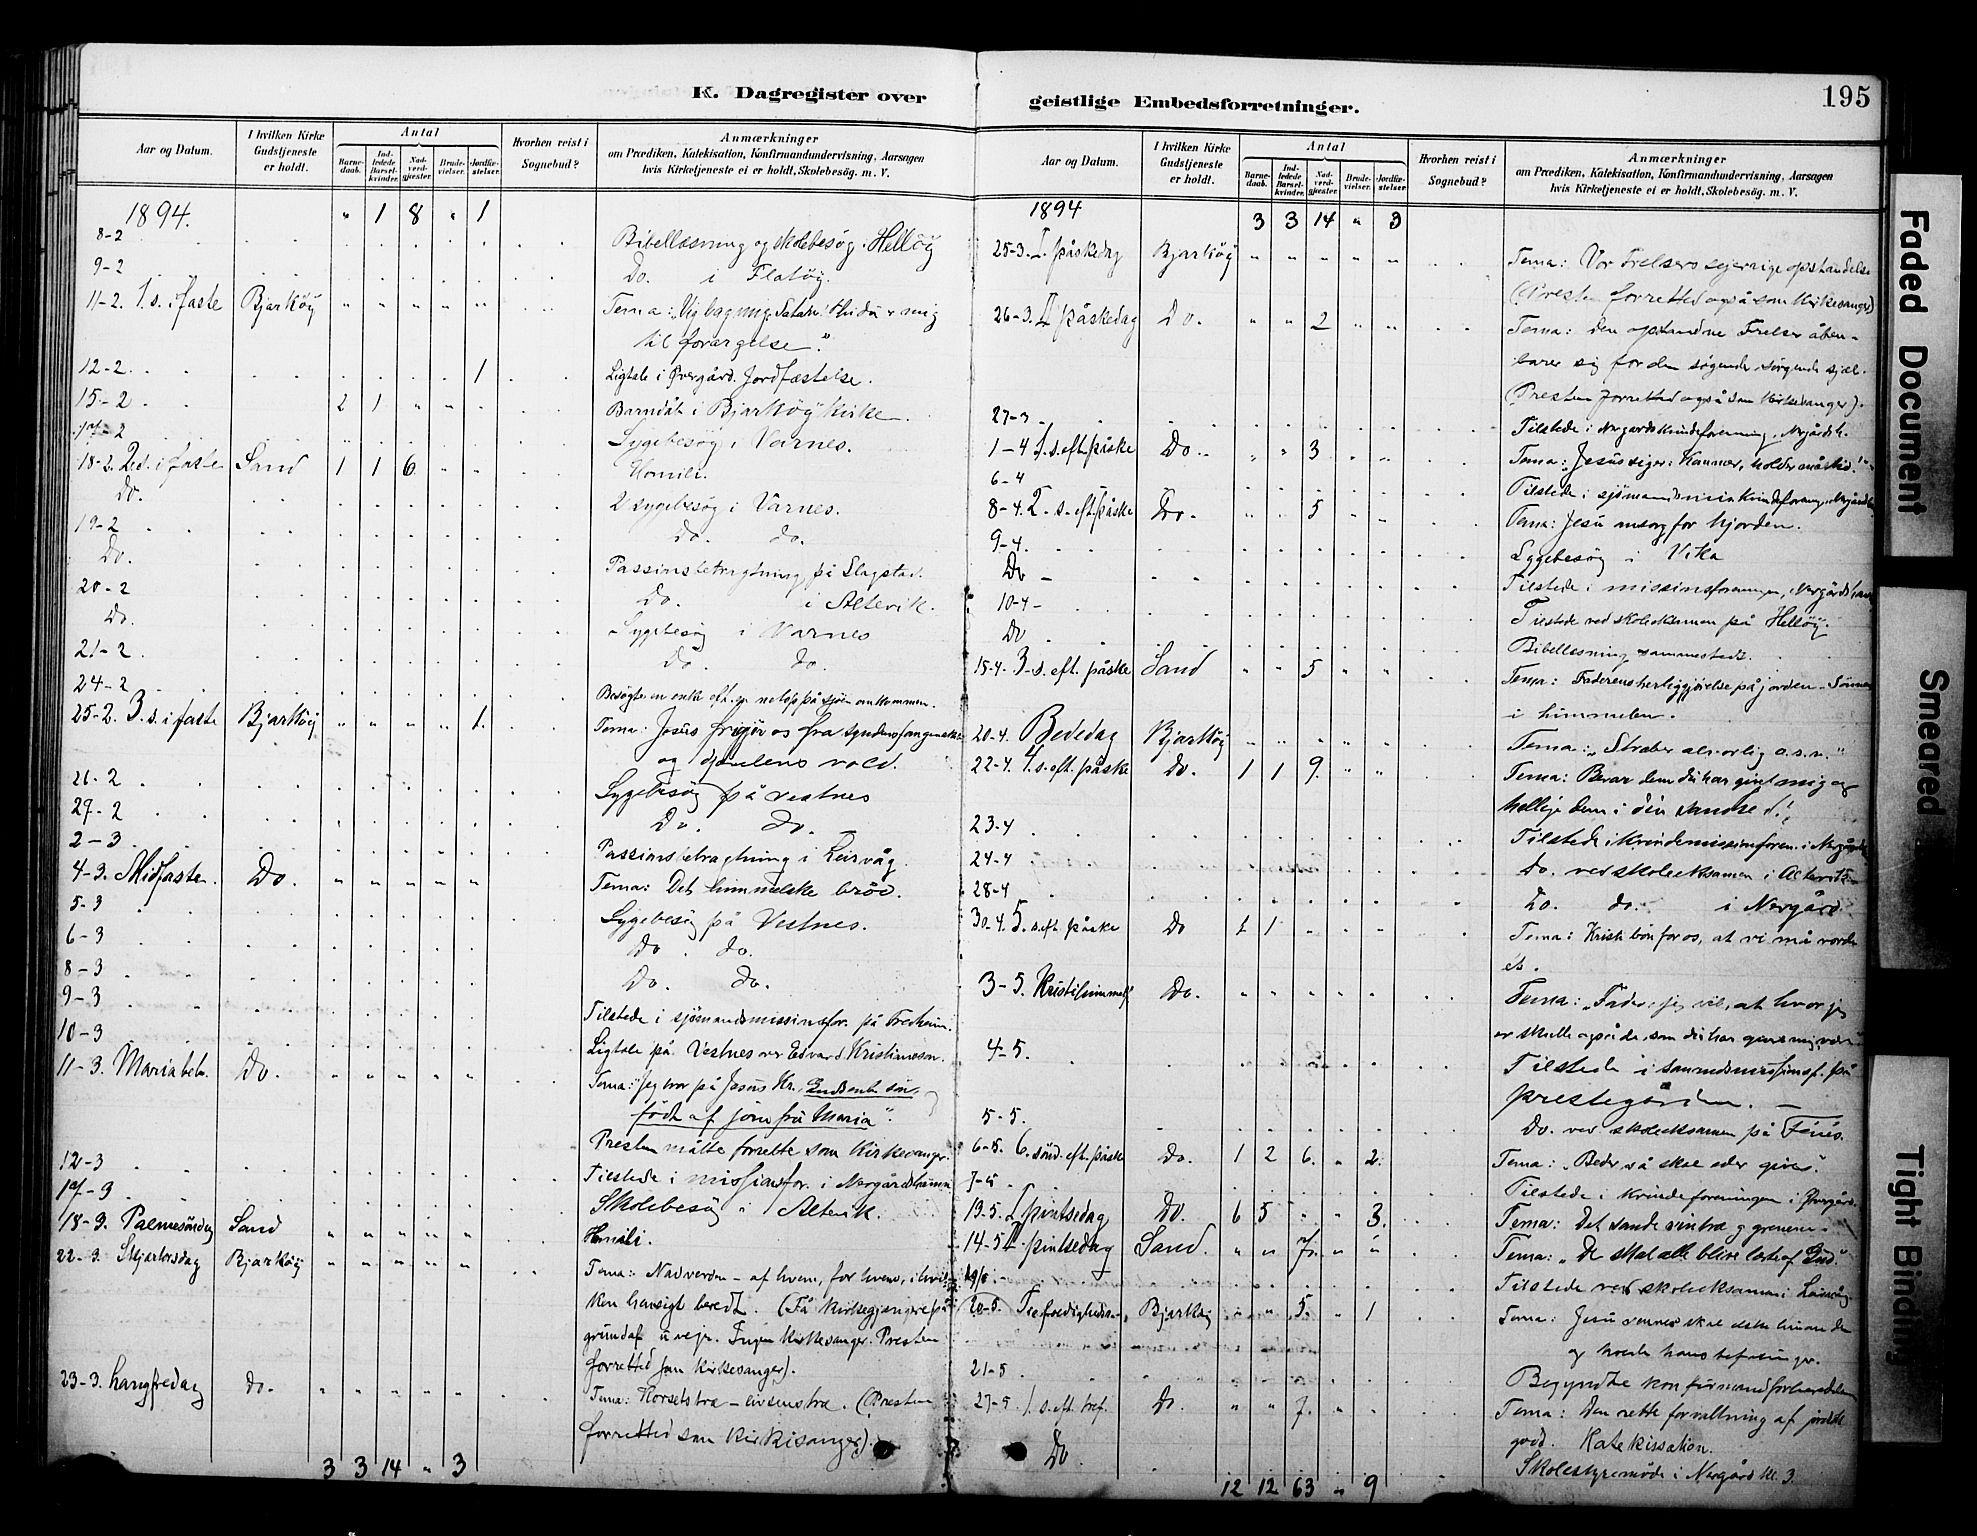 K. Dagregister over
Aar og Datum.
I hvilken Kirke Gudstjeneste er holdt.
Antal
Barnedaab.
Indledede Barselkvinder.
Nadverdgjæster.
Brudevielser.
Jordfæstelser.
Hvorhen reist i Sognebud?
Anmærkninger
om Prædiken, Katekisation, Konfirmandundervisning, Aarsagen
hvis Kirketjeneste ei er holdt, Skolebesög. m. V.
1894. " 1 8 " 1
8-2 Bibellæsning og skolebesøg. Helløy
9-2 Do. i Flatøy.
11-2. 1. s. i faste Bjarkøy " " " " " Tema:
til forargelse."
12-2. 1 Ligtale i Øvergård. Jordfæstelse.
15-2 2 1 " " Barnedåb i Bjarkøy kirke.
17-2 Sygebesøg i Varnes.
18-2. 2. s. i faste Sand 1 1 6 " " Homili.
Do. 2 sygebesøg i Varnes.
19-2 Do. do.
Do. Passionsbetragtning på Slagstad.
20-2 Do. i Altevik.
Do. Sygebesøg i Varnes
21-2 Do. do.
24-2 Besøgte en enke eft. en netop på sjøen omkommen.
25-2. 3. s. i faste Bjarkøy " " " " 1. Tema: Jesus frigjør os fra syndens fangenskab
og djævlens vold.
26-2 Sygebesøg på Vestnes
27-2 Do. do.
2-3 Passionsbetragtning i Leirvåg.
4-3. Midfaste. Do. " " " " " Tema: Det himmelske brød.
5-3 Sygebesøg på Vestnes.
6-3 Do. do.
8-3 Do. do.
9-3 Tilstede i sjømandsmissionsfor. på Fredheim.
10-3 Ligtale på Vestnes over Edvard Kristiansen.
11-3. Mariæbeb. Do. " " " " " Tema: "Jeg tror på Jesus Kr., Guds enb. søn,
født af jomfru Maria".
Presten måtte forrette som kirkesanger.
12-3 Tilstede i missionsfor. i Nergårdshamn
17-3 Skolebesøg i Altevik.
18-3. Palmesøndag Sand " " " " " Homili.
22-3. Skjærtorsdag Bjarkøy " " " " " Tema: Nadverden - af hvem, for hvem, i hvil-
ken hensigt beredt. (Få kirkegjængere på
grund af uveir. Ingen kirkesanger. Presten
forretted som kirkesanger).
23-3. Langfredag do. " " " " " Tema: Korsets træ - livsens træ. (Presten
forretted som kirkesanger).
3 3 14 " 3
geistlige Embedsforretninger. 195
Aar og Datum.
I hvilken Kirke Gudstjeneste er holdt.
Antal
Barnedaab.
Indledede Barselkvinder.
Nadverdgjæster.
Brudevielser.
Jordfæstelser.
Hvorhen reist i Sognebud?
Anmærkninger
om Prædiken, Katekisation, Konfirmandundervisning, Aarsagen
hvis Kirketjeneste ei er holdt, Skolebesög. m. V.
1894 3 3 14 " 3
25-3. I. påskedag Bjarkøy " " " " " Tema: Vor Frelsers seierrige opstandelse
(Presten forretted også som kirkesanger)
26-3. II påskedag Do. " " 2 " " Tema: den opstandne Frelser åben-
barer sig for den søgende, sørgende sjæl.
(Presten forretted også som kirkesanger).
27-3 Tilstede i Nergårds kvindeforening. Nergårdsh.
1-4 1. s. eft. påske Do. " " 3 " " Tema: Jesus siger:
6-4 Tilstede i sjømandsmis. kvindeforening, Nergårdsh.
8-4. 2. s. eft. påske Do. " " 5 " " Tema: Jesu omsorg for hjorden.
9-4. Sygebesøg i Vika
Do - Tilstede i missionsforeningen, Nergårdshavn
10-4 - Tilstede ved skoleeksamen på Helløy.
Do Bibellæsning sammesteds.
15-4. 3. s. eft. påske Sand " " 5 " " Tema: Faderens herliggjørelse på jorden - Sønnens
i himmelen.
20-4. Bededag Bjarkøy " " " " " Tema: "Stræber alvorlig o.s.v."
22-4. 4. s. eft. påske Do. 1 1 9. " " Tema: Bevar dem du har givet mig og
hellige dem i din sandhed!
23-4 Tilstede i kvindemissionsforen. i Nergårdsh.
24-4 Do. ved skoleeksamen i Altevik
28-4 Do. do. i Nergård.
30-4. 5. s. eft. påske Do 1 1 " " " Tema: Kristi bøn for os, at vi må vorde
et.
3-5. Kristi himmelf. Do. " " " " " Tema: "Fader, jeg vil, at hvor jeg
er skulle også de, som du har givet mig, være
4-5. Tilstede i samemissionsf. på
prestegården. -
5-5. Do. ved skoleeksamen på Fenes.
6-5. 6. sønd. eft. påske Do. 1 2 6. " 2. Tema: "Beder, så skal eder gives".
7-5 Tilstede i kvindeforeningen i Øvergård.
13-5. I. pintsedag Do. 6 5 " " 3. Tema: Det sande vintræ og grenene.
14-5 II. pintsedag Sand. " " 7. " " Tema: "De skal alle blive lærte af Gud."
19/5. - Tilstede ved skoleeksamen i Leirvåg.
20-5. Trefoldigheds. Bjarkøy " " 5. " 1 Tema: Jesu venner skal elske hinanden
og holde hans befalinger.
21-5 Begyndte konfirmandforberedelsen
27-5 1. s. eft. tref. Do. " " 7. " " Tema: Den rette forvaltning af jordisk
gods. Katekisation.
Do Skolestyremøde i Nergård kl. 3.
12 12 63 " 9
Faded Document
Smeared
Tight Binding